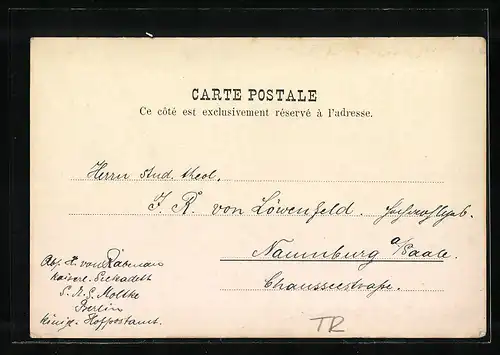 CARTE POSTALE
Ce côté est exclusivement réservé à l'adresse.
Herrn stud. theol.
J. R. von Löwenfeld. Hochwohlgeb.
Naumburg a/Saale.
Chausseestraße.
Abs. H. von Rabenau
Kaiserl. Seekadett
S. M. S. Moltke
Berlin
Königl. Hofpostamt.
TR